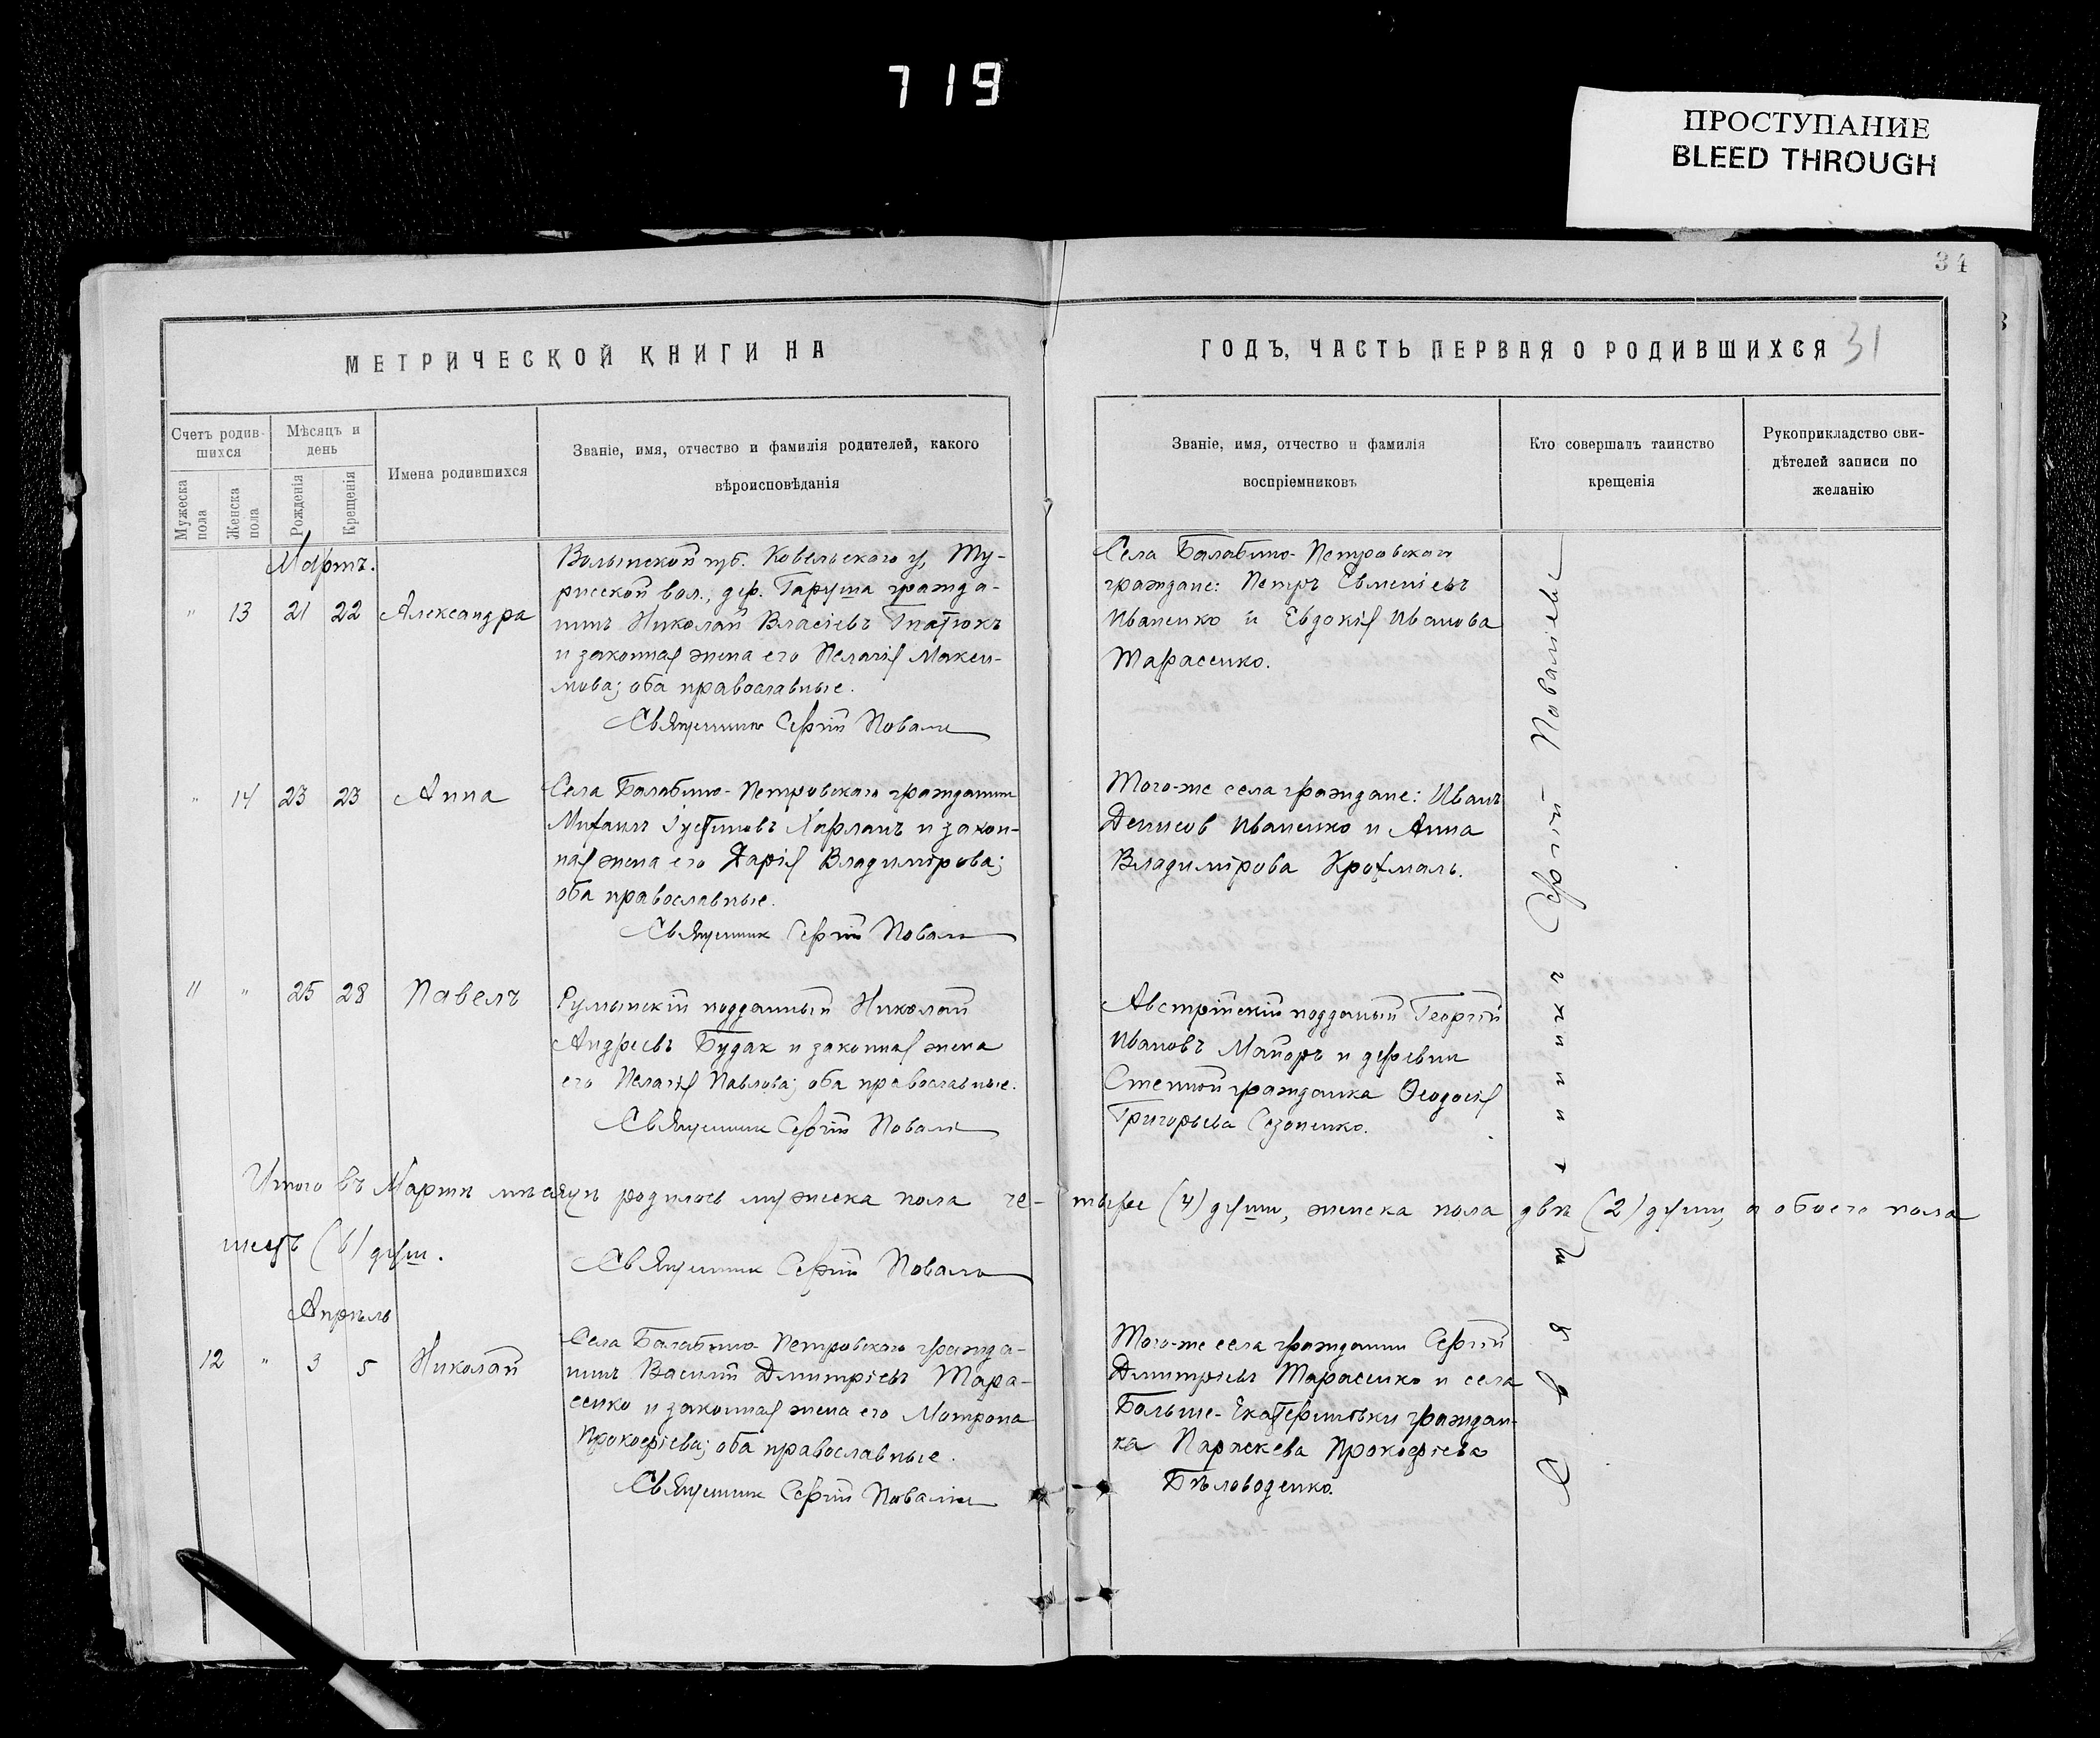 719
ПРОСТУПАНИЕ
BLEED THROUGH
34
МЕТРИЧЕСКОЙ КНИГИ НА
ГОДЪ, ЧАСТЬ ПЕРВАЯ О РОДИВШИХСЯ 31
Счетъ родив-
шихся
Мѣсяцъ и
день
Мужеска
пола
Женска
пола
Рожденія
Крещенія
Имена родившихся
Званіе, имя, отчество и фамилія родителей, какого
вѣроисповѣданія
Званіе, имя, отчество и фамилія
воспріемниковъ
Кто совершалъ таинство
крещенія
Рукоприкладство сви-
дѣтелей записи по
желанію
Мартъ.
" 13 21 22 Александра
Волынской губ. Ковельскаго у, Ту-
рисской вол., дер. Гаруша гражда-
нинъ Николай Власіевъ Гнатюкъ
и законная жена его Пелагія Макси-
мова; оба православные.
Священникъ Сергій Повал
Села Балабино-Петровскаго
граждане: Петръ Евменіевъ
Иваненко и Евдокія Иванова
Тарасенко.
" 14 23 23 Анна
Села Балабино-Петровскаго гражданин
Михаилъ Іустиновъ Харланъ и закон-
ная жена его Дарія Владимірова;
оба православные.
Священник Сергій Повал
Того-же села граждане: Иванъ
Денисов Иваненко и Анна
Владимірова Крохмаль.
11 " 25 28 Павелъ
Румынскій подданный Николай
Андреевъ Будак и законная жена
его Пелагія Павлова; оба православные.
Священник Сергій Повал
Австрійскій подданый Георгій
Ивановъ Майоръ и деревни
Степной гражданка Ѳеодосія
Григорьева Созоненко.
Итого въ Мартѣ мѣсяцѣ родилось мужеска пола че-тыре (4) души, женска пола двѣ (2) души, а обоего пола
шесть (6) душ.
Священник Сергій Повал
Апрѣль
12 " 3 5 Николай
Села Балабино-Петровскаго гражда-
нинъ Василій Дмитріевъ Тара-
сенко и законная жена его Матрона
Прокофіева; оба православные.
Священник Сергій Повал
Того-же села гражданин Сергій
Дмитріевъ Тарасенко и села
Больше-Екатериновки граждан-
ка Параскева Прокофіева
Бѣловоденко.
Священникъ Сергій Повал